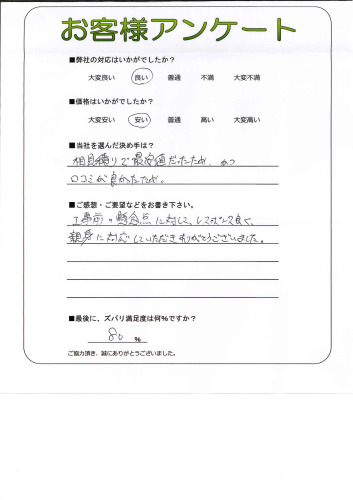 お客様アンケート
■弊社の対応はいかがでしたか?
大変良い 良い 普通 不満 大変不満
■価格はいかがでしたか?
大変安い 安い 普通 高い 大変高い
■当社を選んだ決め手は?
相見積りで最安値だったため、かつ
口コミが良かったため。
■ご感想・ご要望などをお書き下さい。
工事前の懸念点に対して、レスポンス良く、
親身に対応していただきありがとうございました。
■最後に、ズバリ満足度は何%ですか?
80 %
ご協力頂き、誠にありがとうございました。